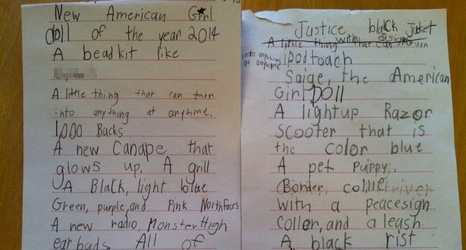 New American Girl
doll of the year 2014
A bead kit like
A little thing that can turn
into anything at anytime.
1,000 Bucks
A new Canape that
glows up, A grill
A Black, light blue
Green, purple, and Pink North Faces
A new radio, Monster High
ear buds All of
Justice black Jacket
with
A little thing that can
at anytime
ipoitoach
Saige, the American
Girl Doll
A lightup Razor
Scooter that is
the color blue
A pet Puppy,
(Border, collie
with a peacesign
Coller, and a leash
A black rist